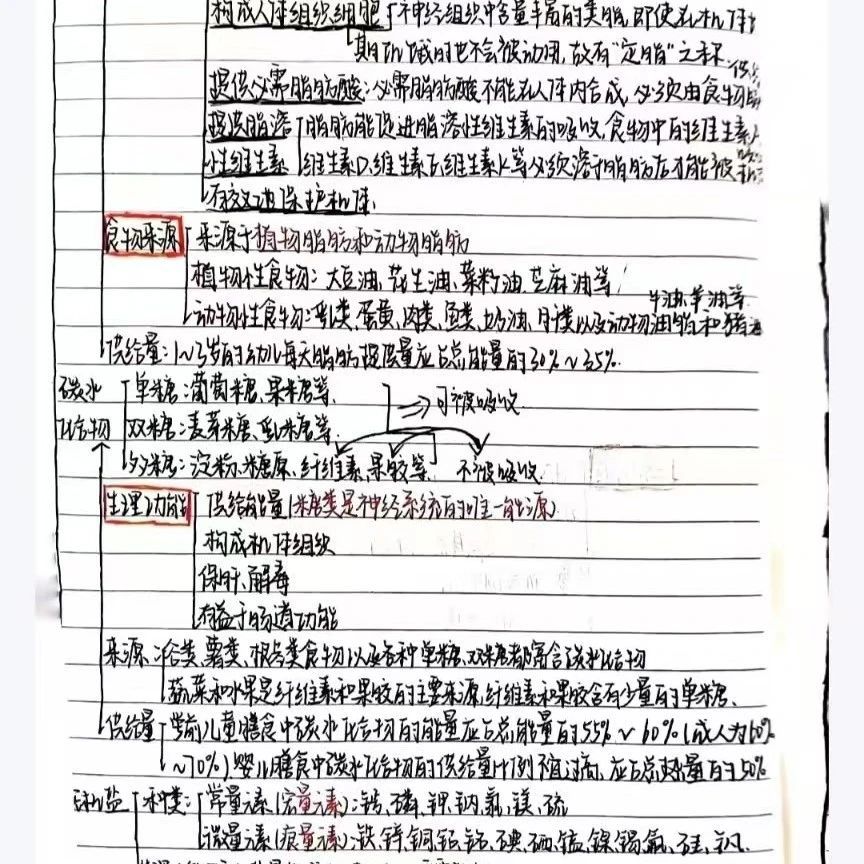 构成人体组织细胞 神经组织中含量丰富的类脂,即使在机体
期饥饿时也不会被动用,故有"定脂"之称
提供必需脂肪酸:必需脂肪酸不能在人体内合成,必须由食物
提供脂溶 脂肪能促进脂溶性维生素的吸收,食物中的维生素A
性维生素 维生素D、维生素E、维生素K等必须溶于脂肪后才能被
有效地保护机体
食物来源 来源于植物脂肪和动物脂肪
植物性食物:大豆油、花生油、菜籽油、芝麻油等
牛油、羊油等
动物性食物:乳类、蛋黄、肉类、鱼类、奶油、肝类以及动物油脂和猪
供给量:1~3岁的幼儿每天脂肪提供量应占总能量的30%~35%.
碳水 单糖:葡萄糖、果糖等. ⇒可被吸收
化合物 双糖:麦芽糖、乳糖等.
多糖:淀粉、糖原、纤维素、果胶等. 不被吸收.
生理功能 供给能量(糖类是神经系统的唯一能源)
构成机体组织
保肝、解毒
有益于肠道功能
来源:谷类、薯类、根茎类食物以及各种单糖、双糖都富含碳水化合物
蔬菜和水果是纤维素和果胶的主要来源,纤维素和果胶含有少量的单糖、
供给量 学前儿童膳食中碳水化合物的能量应占总能量的55%~60%(成人为60%
~70%)婴儿膳食中碳水化合物的供给量比例不宜过高,应占总热量的50%
无机盐 种类:常量元素(宏量元素):钙、磷、钾、钠、氯、镁、硫
微量元素(痕量元素):铁、锌、铜、铝、铬、碘、硒、锰、镍、锡、氟、硅、钒.